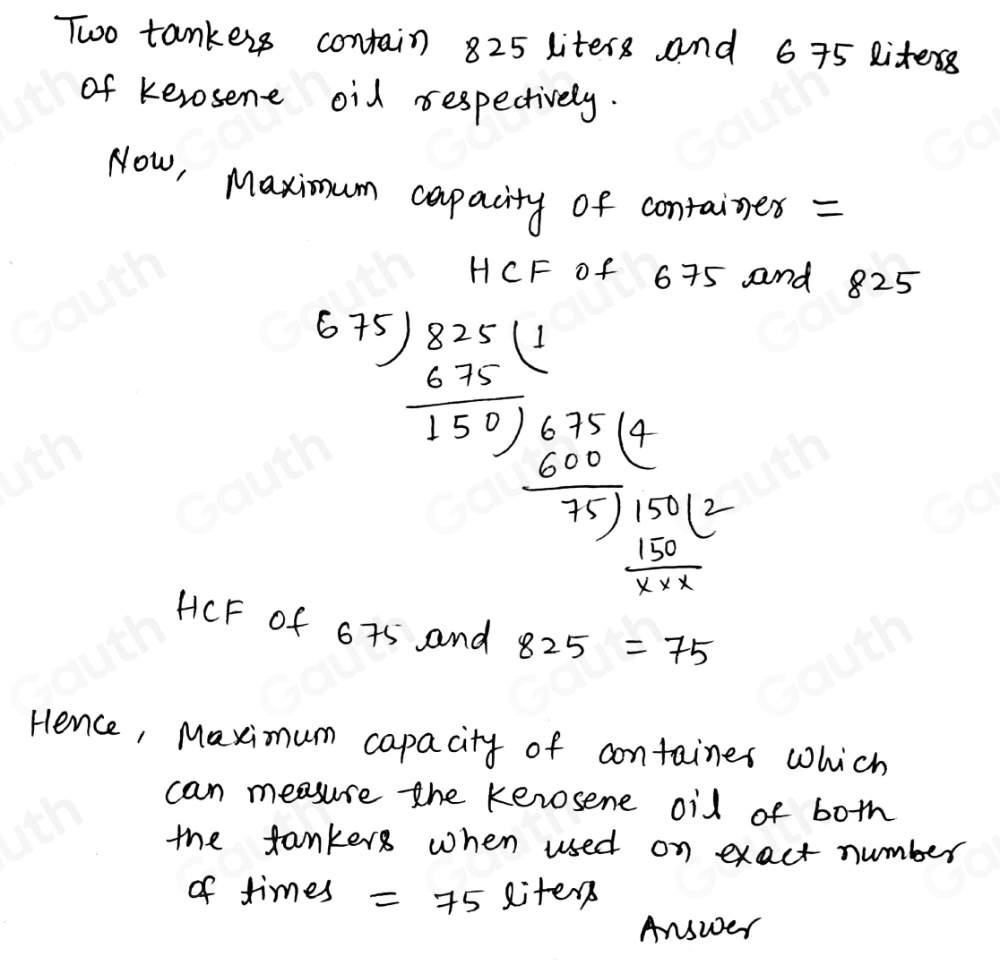 Two tankers contain 825 liters and 675 liters
of Kerosene oil respectively.
Now, Maximum capacity of container =
HCF of 675 and 825
675) 825 (1
675
150) 675 (4
600
75) 150 (2
150
xxx
HCF of 675 and 825 = 75
Hence, Maximum capacity of container which
can measure the Kerosene oil of both
the tankers when used on exact number
of times = 75 liters
Answer
Gauth